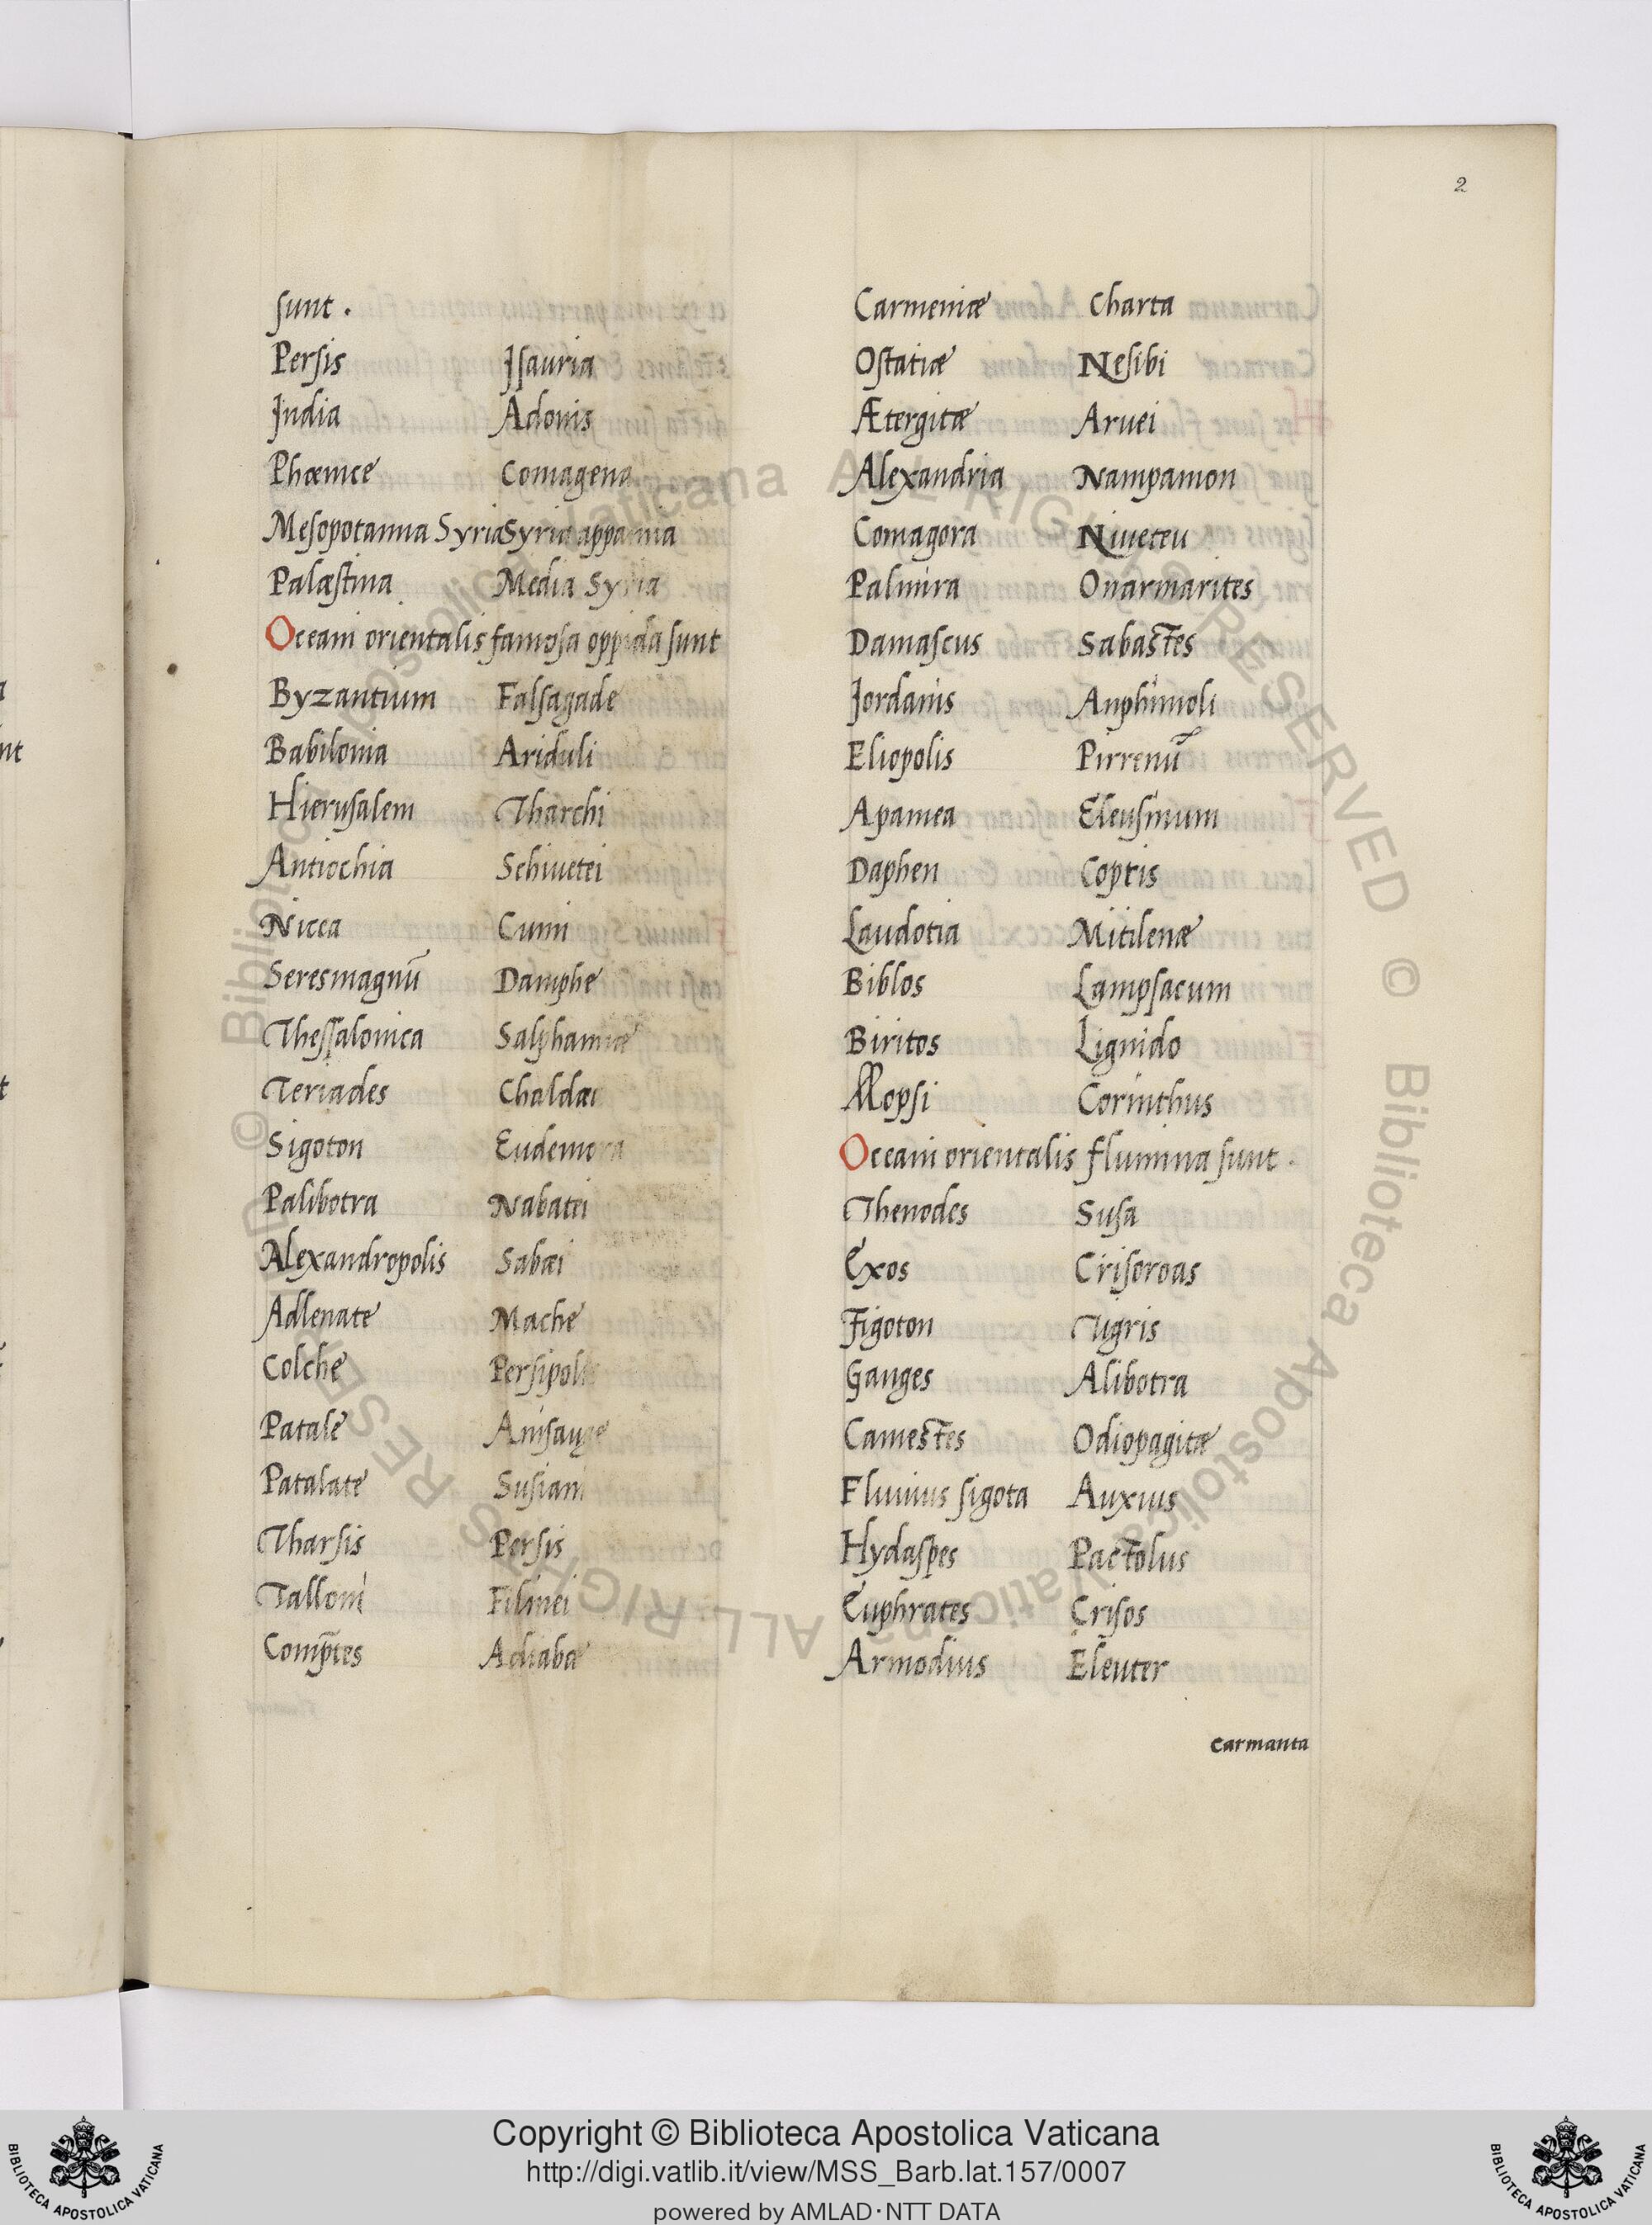 2
sunt.
Persis Isauria
India Adonis
Phœnice Comagena
Mesopotamia Syria Syria appamia
Palæstina Media Syria
Oceani orientalis famosa oppida sunt
Byzantium Falsagade
Babilonia Ariduli
Hierusalem Tharchi
Antiochia Schiuetei
Nicea Cumi
Seresmagnū Damphe
Thessalonica Salphamiæ
Teriades Chaldæi
Sigoton Eudemora
Palibotra Nabatei
Alexandropolis Sabæi
Adlenate Mache
Colche Persipolis
Patale
Patalate
Tharsis Persis
Talloni Filinei
Adiabæ
Carmeniæ Charta
Ostatiæ Nesibi
Ætergitæ Aruei
Alexandria Nampamon
Comagora Niueteu
Palmira Onarmarites
Damascus Sabastes
Jordanis Anphimoli
Eliopolis Pirrenū
Apamea Eleusinum
Daphen Coptis
Laudotia Mitilenæ
Biblos Lampsacum
Biritos Lignido
Mopsi Corinthus
Oceani orientalis flumina sunt.
Thenodes Susa
Exos Crisoroas
Figoton Tigris
Ganges Alibotra
Camestes Odiopagitæ
Fluuius sigota Auxius
Hydaspes Pactolus
Euphrates Crisos
Armodius Eleuter
Carmanta
© Biblioteca Apostolica Vaticana ALL RIGHTS RESERVED
Copyright © Biblioteca Apostolica Vaticana
http://digi.vatlib.it/view/MSS_Barb.lat.157/0007
powered by AMLAD·NTT DATA
BIBLIOTECA APOSTOLICA VATICANA
BIBLIOTECA APOSTOLICA VATICANA